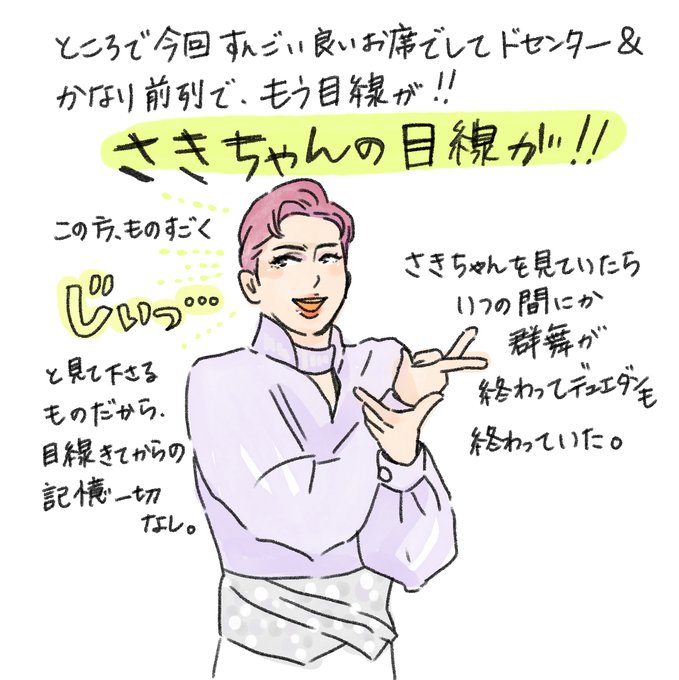 ところで今回すんごい良いお席でしてドセンター&
かなり前列で、もう目線が!!
さきちゃんの目線が!!
この方、ものすごく
じぃっ…
と見て下さる
ものだから、
目線きてからの
記憶一切
なし。
さきちゃんを見ていたら
いつの間にか
群舞が
終わってデュエダンも
終わっていた。